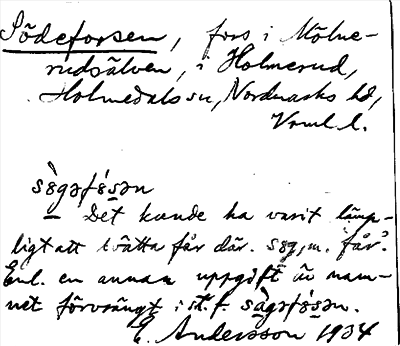 Södeforsen, fors i Mölne-
rudsälven, i Holmerud,
Holmedals sn, Nordmarks hd,
Vrml. l.
sö̀gəfɷ́sən
— Det kunde ha varit lämp-
ligt att tvätta får där. sög, m. 'får'.
Enl. en annan uppgift är nam-
net förvrängt i st. f. sàgəfɷ́sən.
E. Andersson 1934